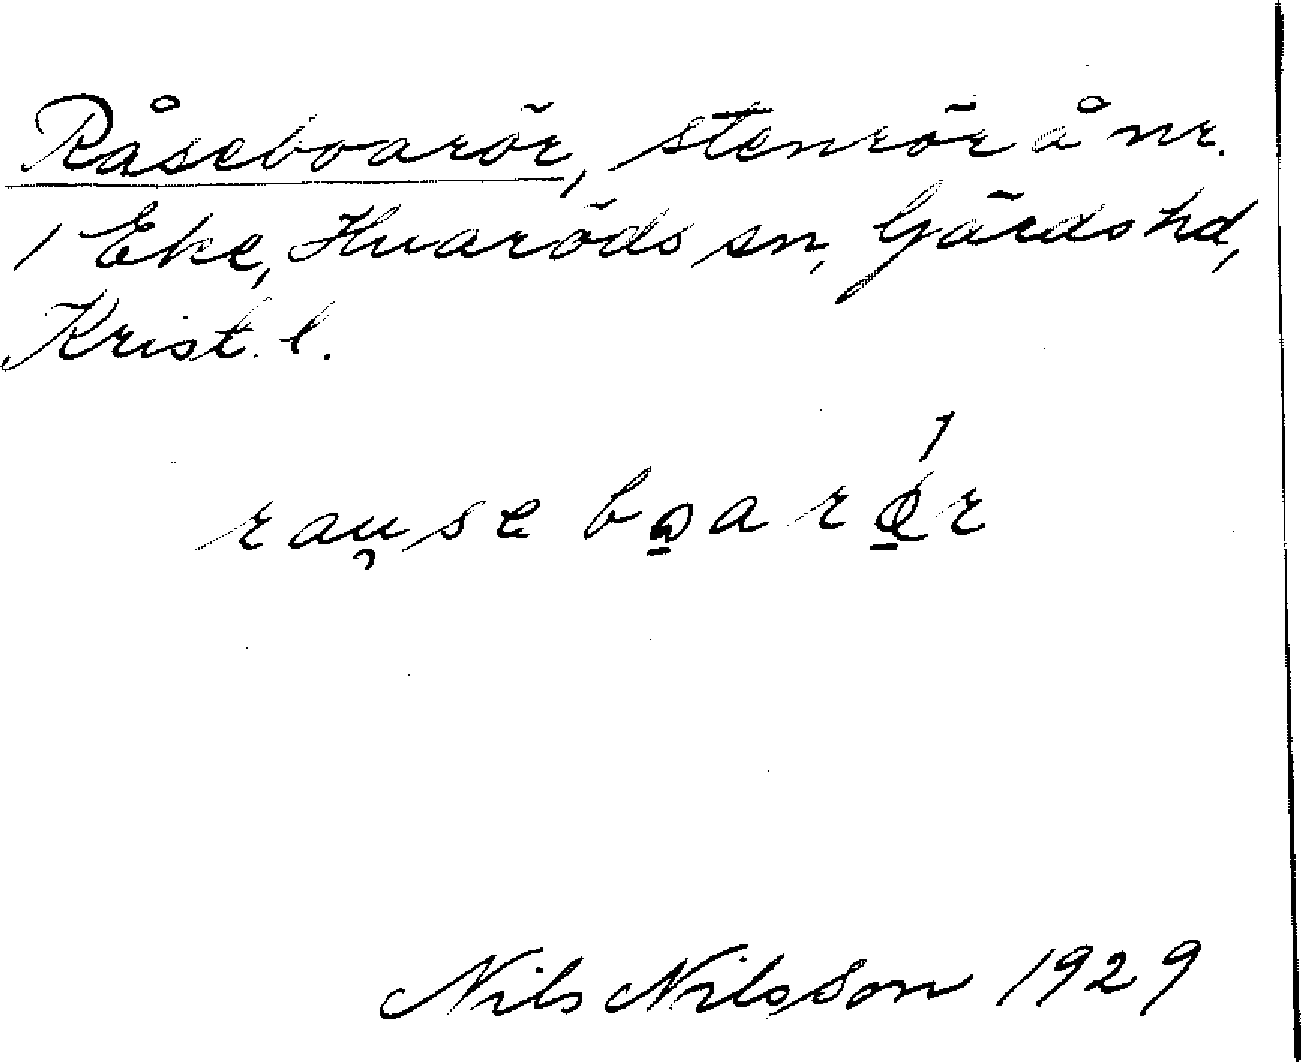 Råseboarör, stenrör å nr.
1 Eke, Huaröds sn, Gärds hd,
Krist. l.
rau̡se bo̱arǿ̱r
Nils Nilsson 1929